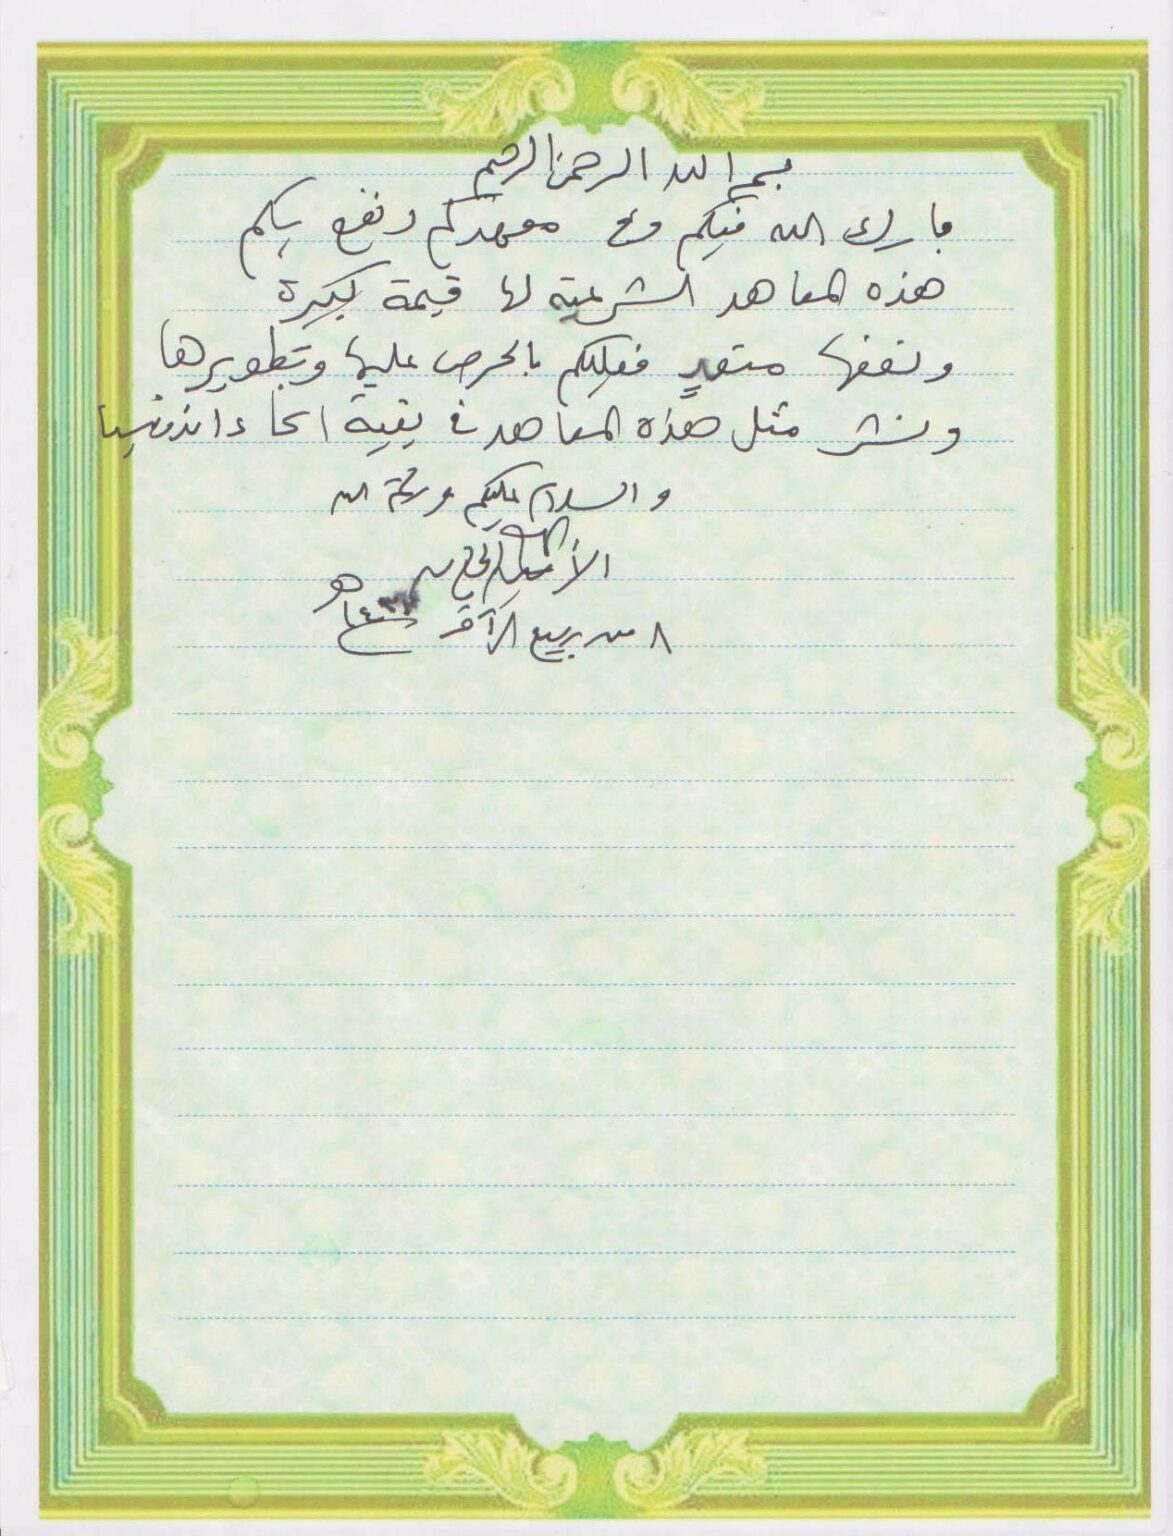 بسم الله الرحمن الرحيم
بارك الله فيكم وفي معهدكم ونفع بكم
هذه المعاهد الشرعية لها قيمة كبيرة
ونفعها متعدٍ فعليكم بالحرص عليها وتطويرها
ونشر مثل هذه المعاهد في بقية انحاء اندونيسيا
والسلام عليكم ورحمة الله
٨ من ربيع الآخر هـ